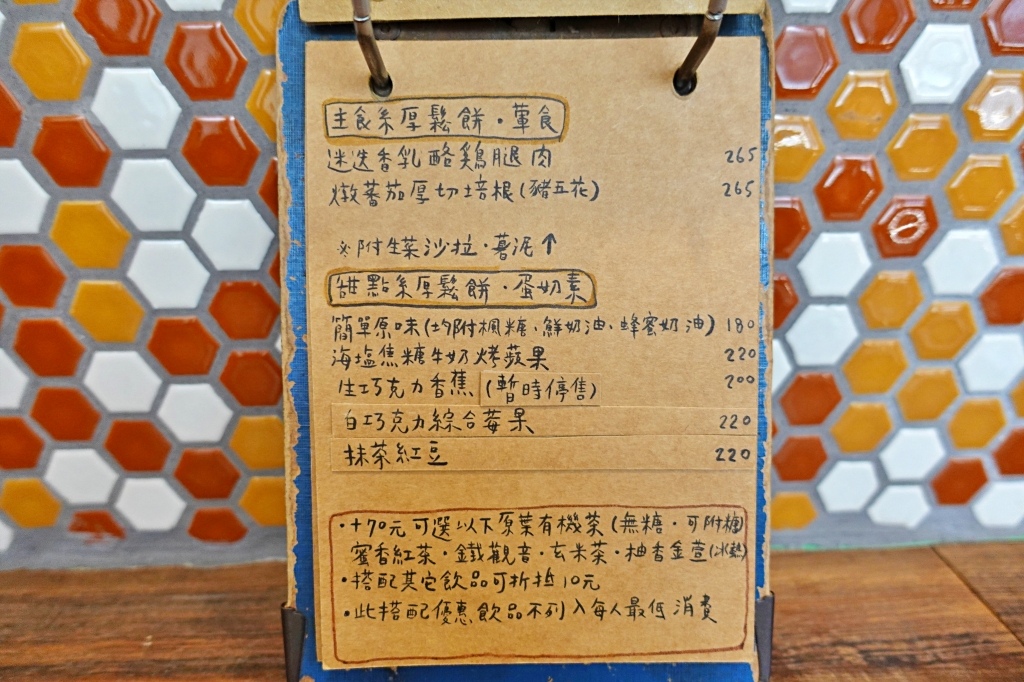 主食系厚鬆餅·葷食
迷迭香乳酪鷄腿肉 265
燉蕃茄厚切培根(豬五花) 265
※附生菜沙拉·薯泥↑
甜點系厚鬆餅·蛋奶素
簡單原味(均附楓糖、鮮奶油、蜂蜜奶油) 180
海塩焦糖牛奶烤蘋果 220
生巧克力香蕉 (暫時停售) 200
白巧克力綜合莓果 220
抹茶紅豆 220
·+70元可選以下原葉有機茶(無糖·可附糖)
蜜香紅茶·鐵觀音·玄米茶·柚香金萱(冰/熱)
·搭配其它飲品可折抵10元
·此搭配優惠飲品不列入每人最低消費